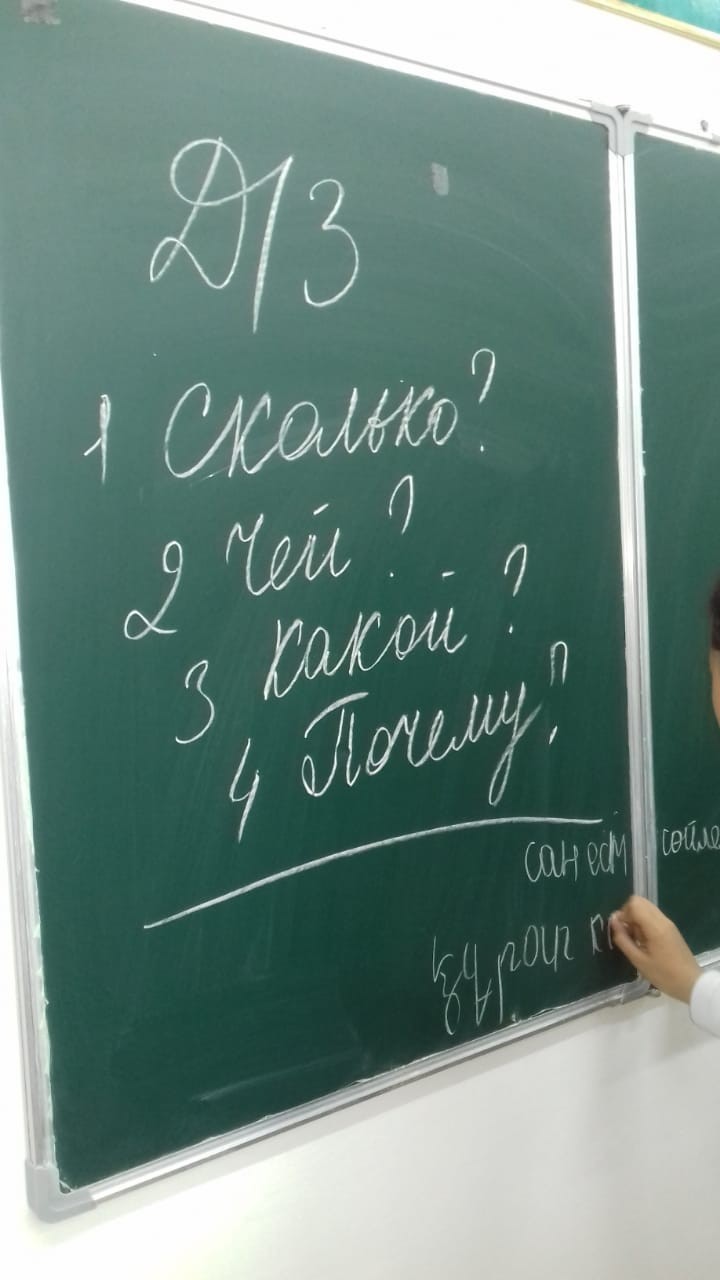 Д/З
1 Сколько?
2 Чей?
3 какой?
4 Почему?
сан есім сөйле
құрап